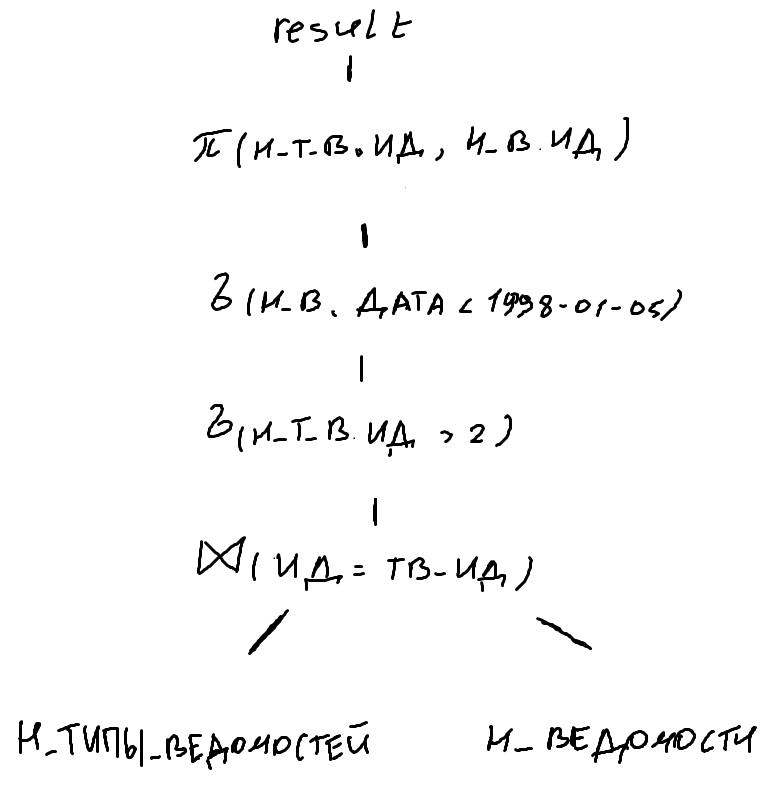 result
π(Н_Т_В.ИД, Н_В.ИД)
σ(Н_В.ДАТА < 1998-01-05)
σ(Н_Т_В.ИД > 2)
⋈(ИД = ТВ_ИД)
Н_ТИПЫ_ВЕДОМОСТЕЙ Н_ВЕДОМОСТИ